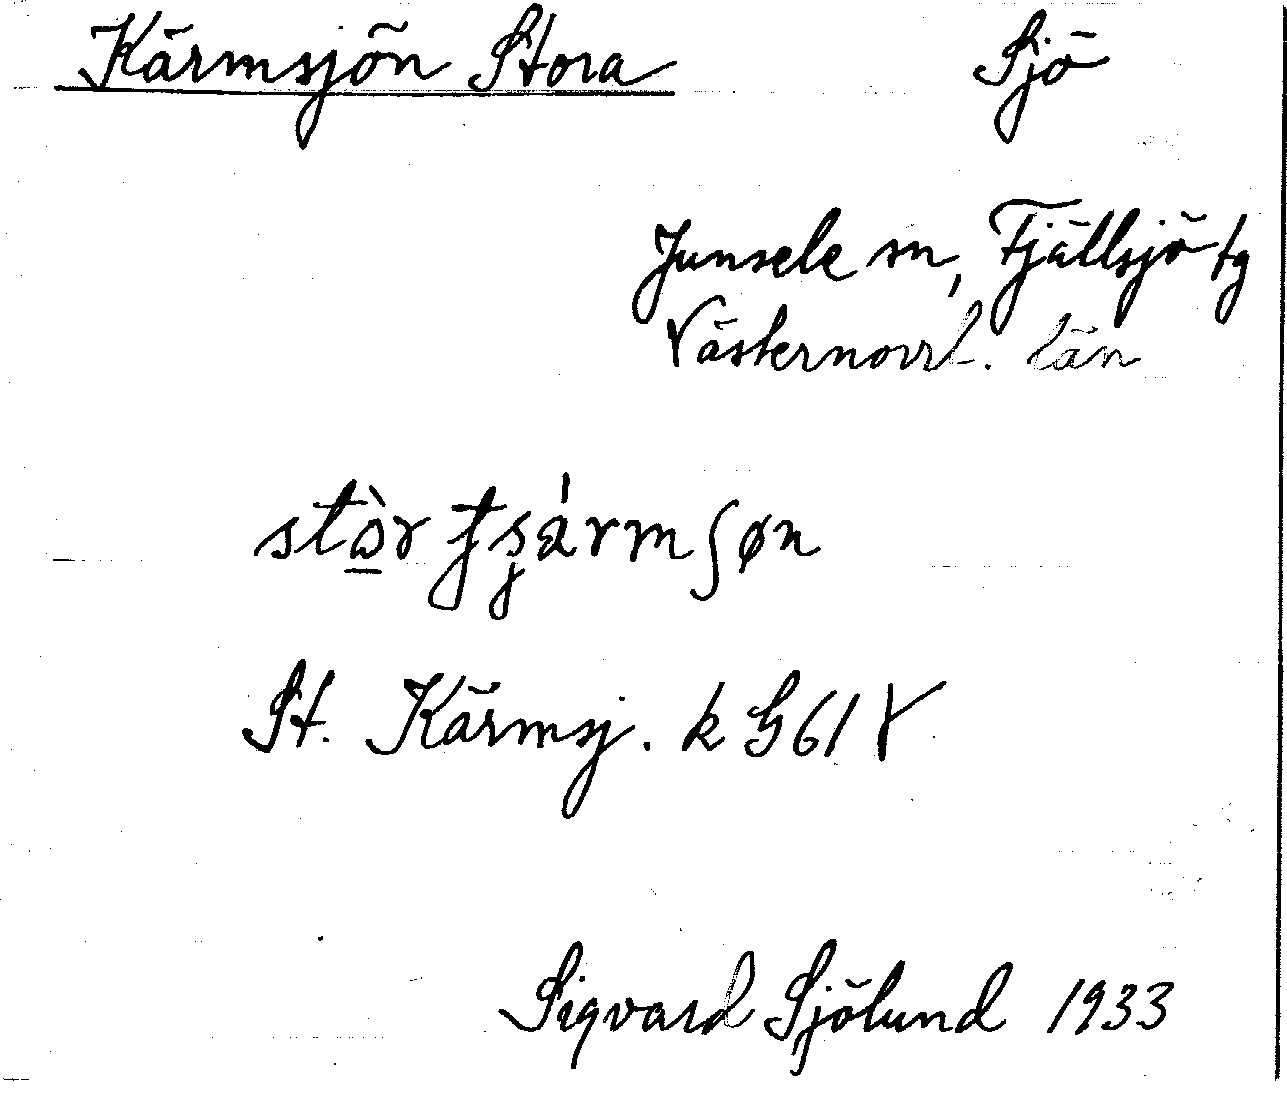 Kärmsjön Stora Sjö
Junsele sn, Fjällsjö tg
Västernorrl. län
St. Kärmsj. k G61 V
Sigvard Sjölund 1933